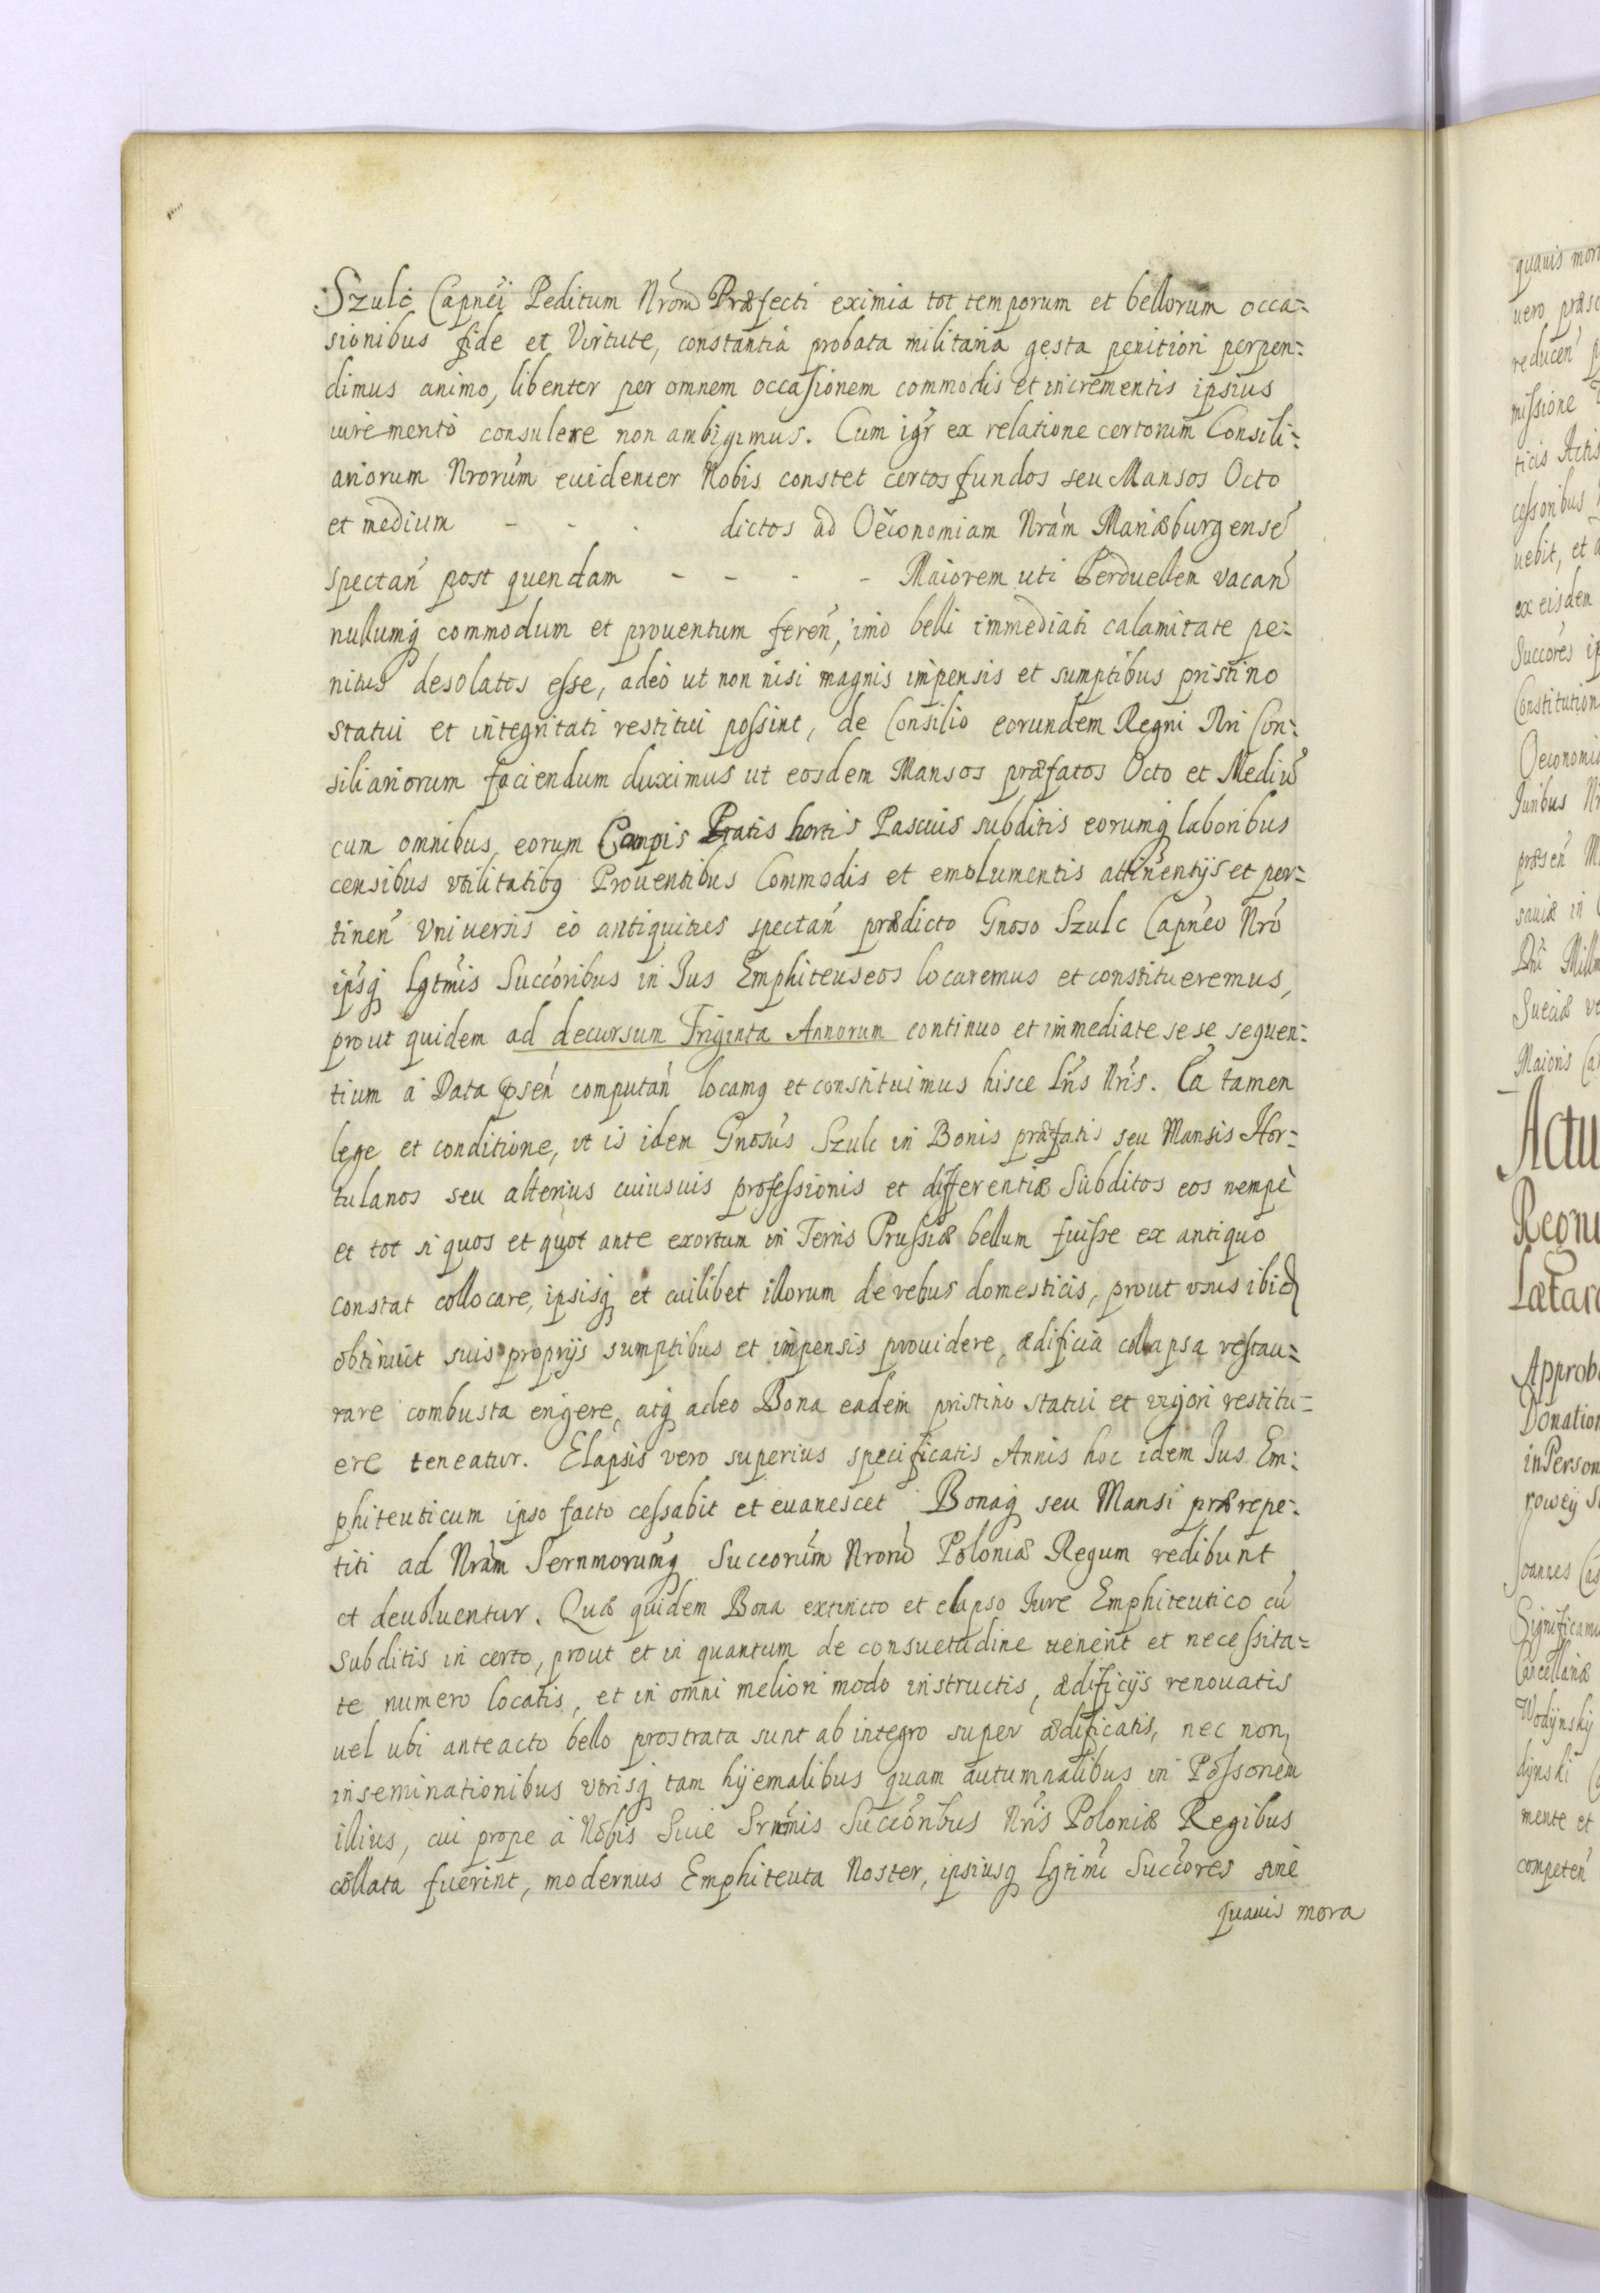 Szulc Capnéi Peditum Nrorũ Præfecti eximia tot temporum et bellorum occa=
sionibus fide et Virtute, constantiâ probata militaria gesta penitiori perpen=
dimus animo, libenter per omnem occasionem commodis et incrementis ipsius
iure meritò consulere non ambigimus. Cum igr̃ ex relatione certorum Consili=
ariorum Nrorum euidenter Nobis constet certos fundos seu Mansos Octo
et medium - - - dictos ad Oeconomiam Nrãm Mariæburgensẽ
spectañ post quendam - - - - Maiorem uti Perduellem vacañ
nullumq̃ commodum et prouentum fereñ, imò belli immediati calamitate pe=
nitus desolatos esse, adeò ut non nisi magnis impensis et sumptibus pristino
statui et integritati restitui possint, de Consilio eorundem Regni Nri Con=
siliariorum faciendum duximus ut eosdem Mansos præfatos Octo et Mediũ
cum omnibus eorum Campis Pratis hortis Pascuis subditis eorumq̃ laboribus
censibus vtilitatibq Prouentibus Commodis et emolumentis attinentijs et per=
tineñ Vniuersis eò antiquitus spectañ prædicto Gnoso Szulc Capneo Nrõ
ipsq̃ Lgtmis Succoribus in Jus Emphiteuseos locaremus et constitueremus,
prout quidem ad decursum Triginta Annorum continuo et immediate sese sequen=
tium à Data pseñ computañ locamq et constituimus hisce Lrĩs Nrĩs. Eâ tamen
lege et conditione, vt is idem Gnosus Szulc in Bonis præfatis seu Mansis Hor=
tulanos seu alterius cuiusuis professionis et differentiæ Subditos eos nempè
et tot si quos et quot ante exortum in Terris Prussiæ bellum fuisse ex antiquo
constat collocare, ipsisq̃ et cuilibet illorum de rebus domesticis, prout vsus ibid
obtinuit suis proprijs sumptibus et impensis prouidere, ædificia collapsa restau=
rare combusta erigere, atq̃ adeo Bona eadem pristino statui et vigori restitu=
ere teneatur. Elapsis vero superius specificatis Annis hoc idem Jus Em=
phiteuticum ipso facto cessabit et euanescet Bonaq̃ seu Mansi prærepe=
titi ad Nrãm Sernmorumq̃ Succorum Nrorũ Poloniæ Regum redibunt
et deuoluentur. Quæ quidem Bona extincto et elapso Jure Emphiteutico cũ
subditis in certo, prout et in quantum de consuetudine uenerit et necessita=
te numero locatis, et in omni meliori modo instructis, ædificijs renouatis
uel ubi anteacto bello prostrata sunt ab integro super ædificatis, nec non
inseminationibus vtrisq̃ tam hyemalibus quam autumnalibus in Possonem
illius, cui prope à Nobis Siue Srñmis Succoribus Nrĩs Poloniæ Regibus
collata fuerint, modernus Emphiteuta Noster, ipsiusq̃ Lgtimi Succores sinè
quauis mora
quauis mor
vero præsc
reduceñ p
missione
ticis Actis
cessoribus
uebit, et a
ex eisden
Succores ip
Constitution
Oeconomi
Juribus Nr
præseñ M
sauiæ in
Dni Mill
Sueciæ ve
Maioris Ca
Actu
Regni
Lætar
Approb
Donation
in Person
rowey S
Joannes Cas
Significam
Cancellariæ
Wodynskij
dynski
mente et
competeñ